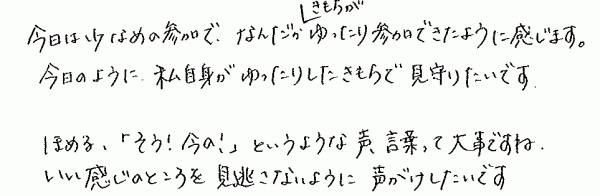 今日は少なめの参加で、なんだか きもちが ゆったり参加できたように感じます。
今日のように、私自身がゆったりしたきもちで見守りたいです
ほめる、「そう！今の！」というような声、言葉って大事ですね。
いい感じのところを見逃さないように声がけしたいです